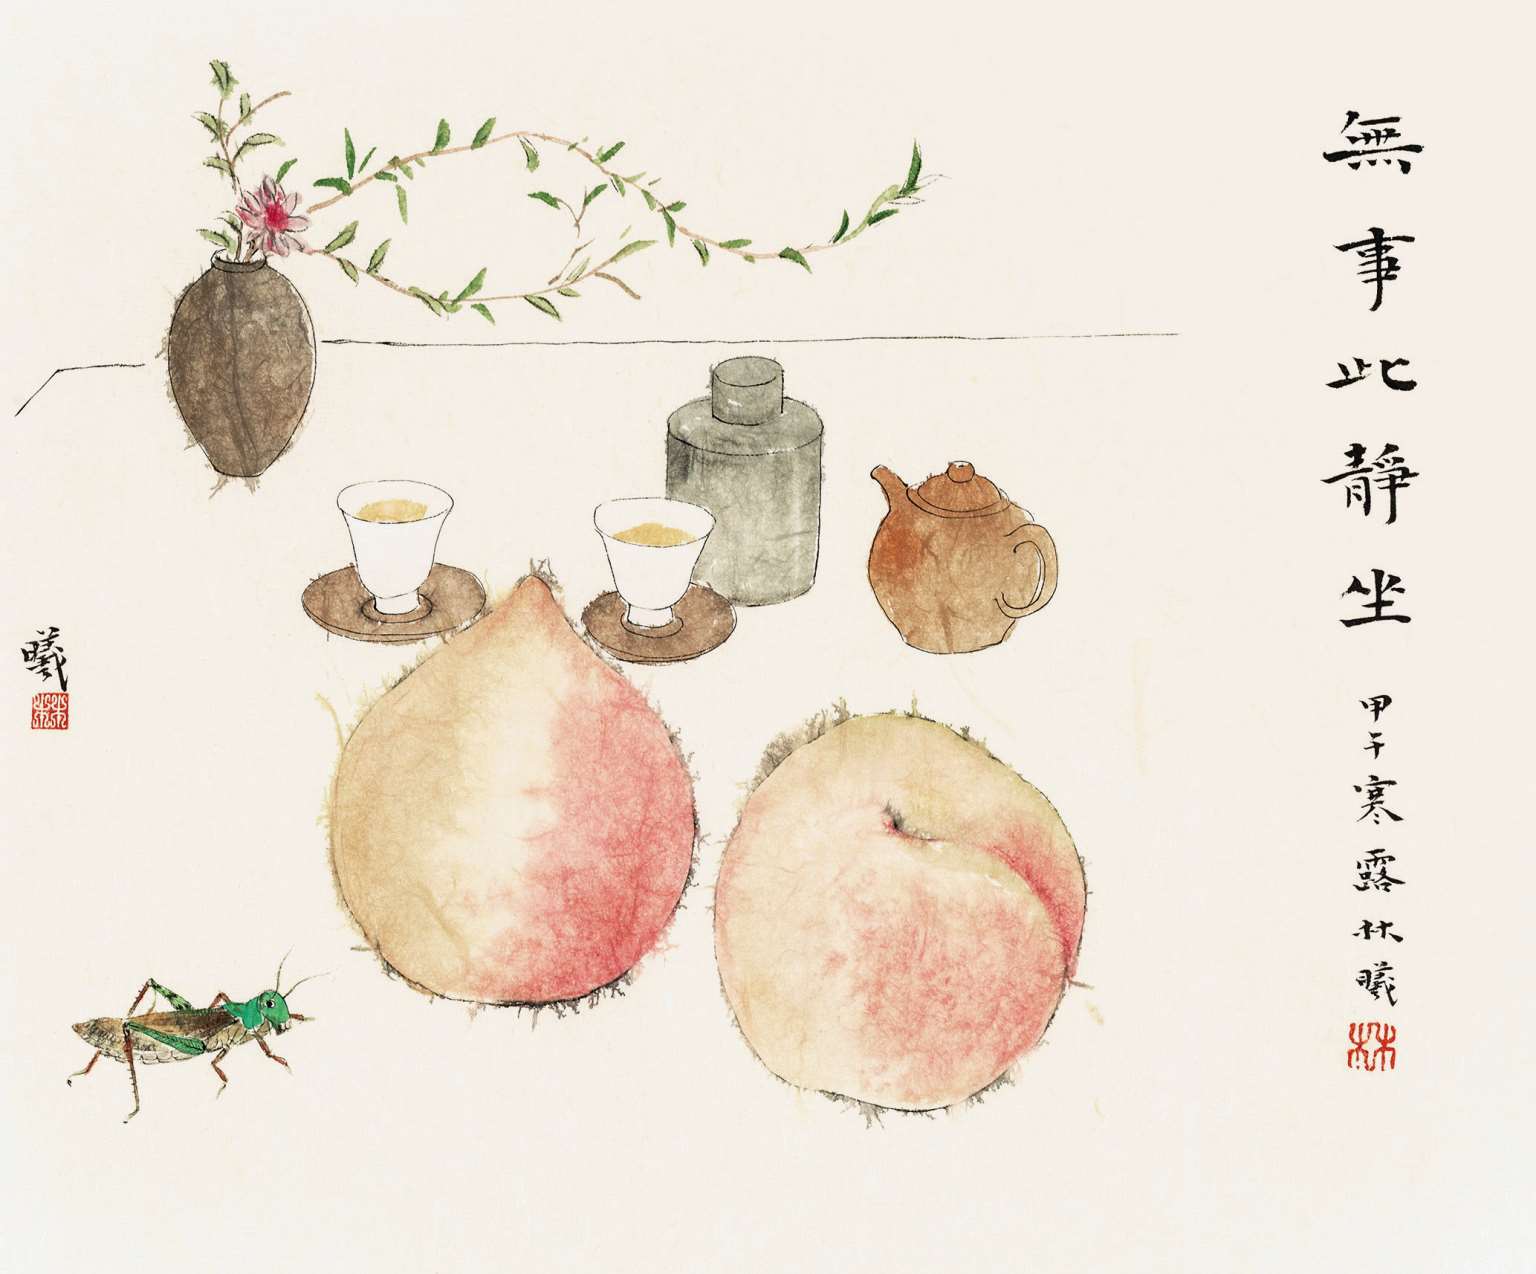 無事此靜坐
甲午寒露林曦
曦